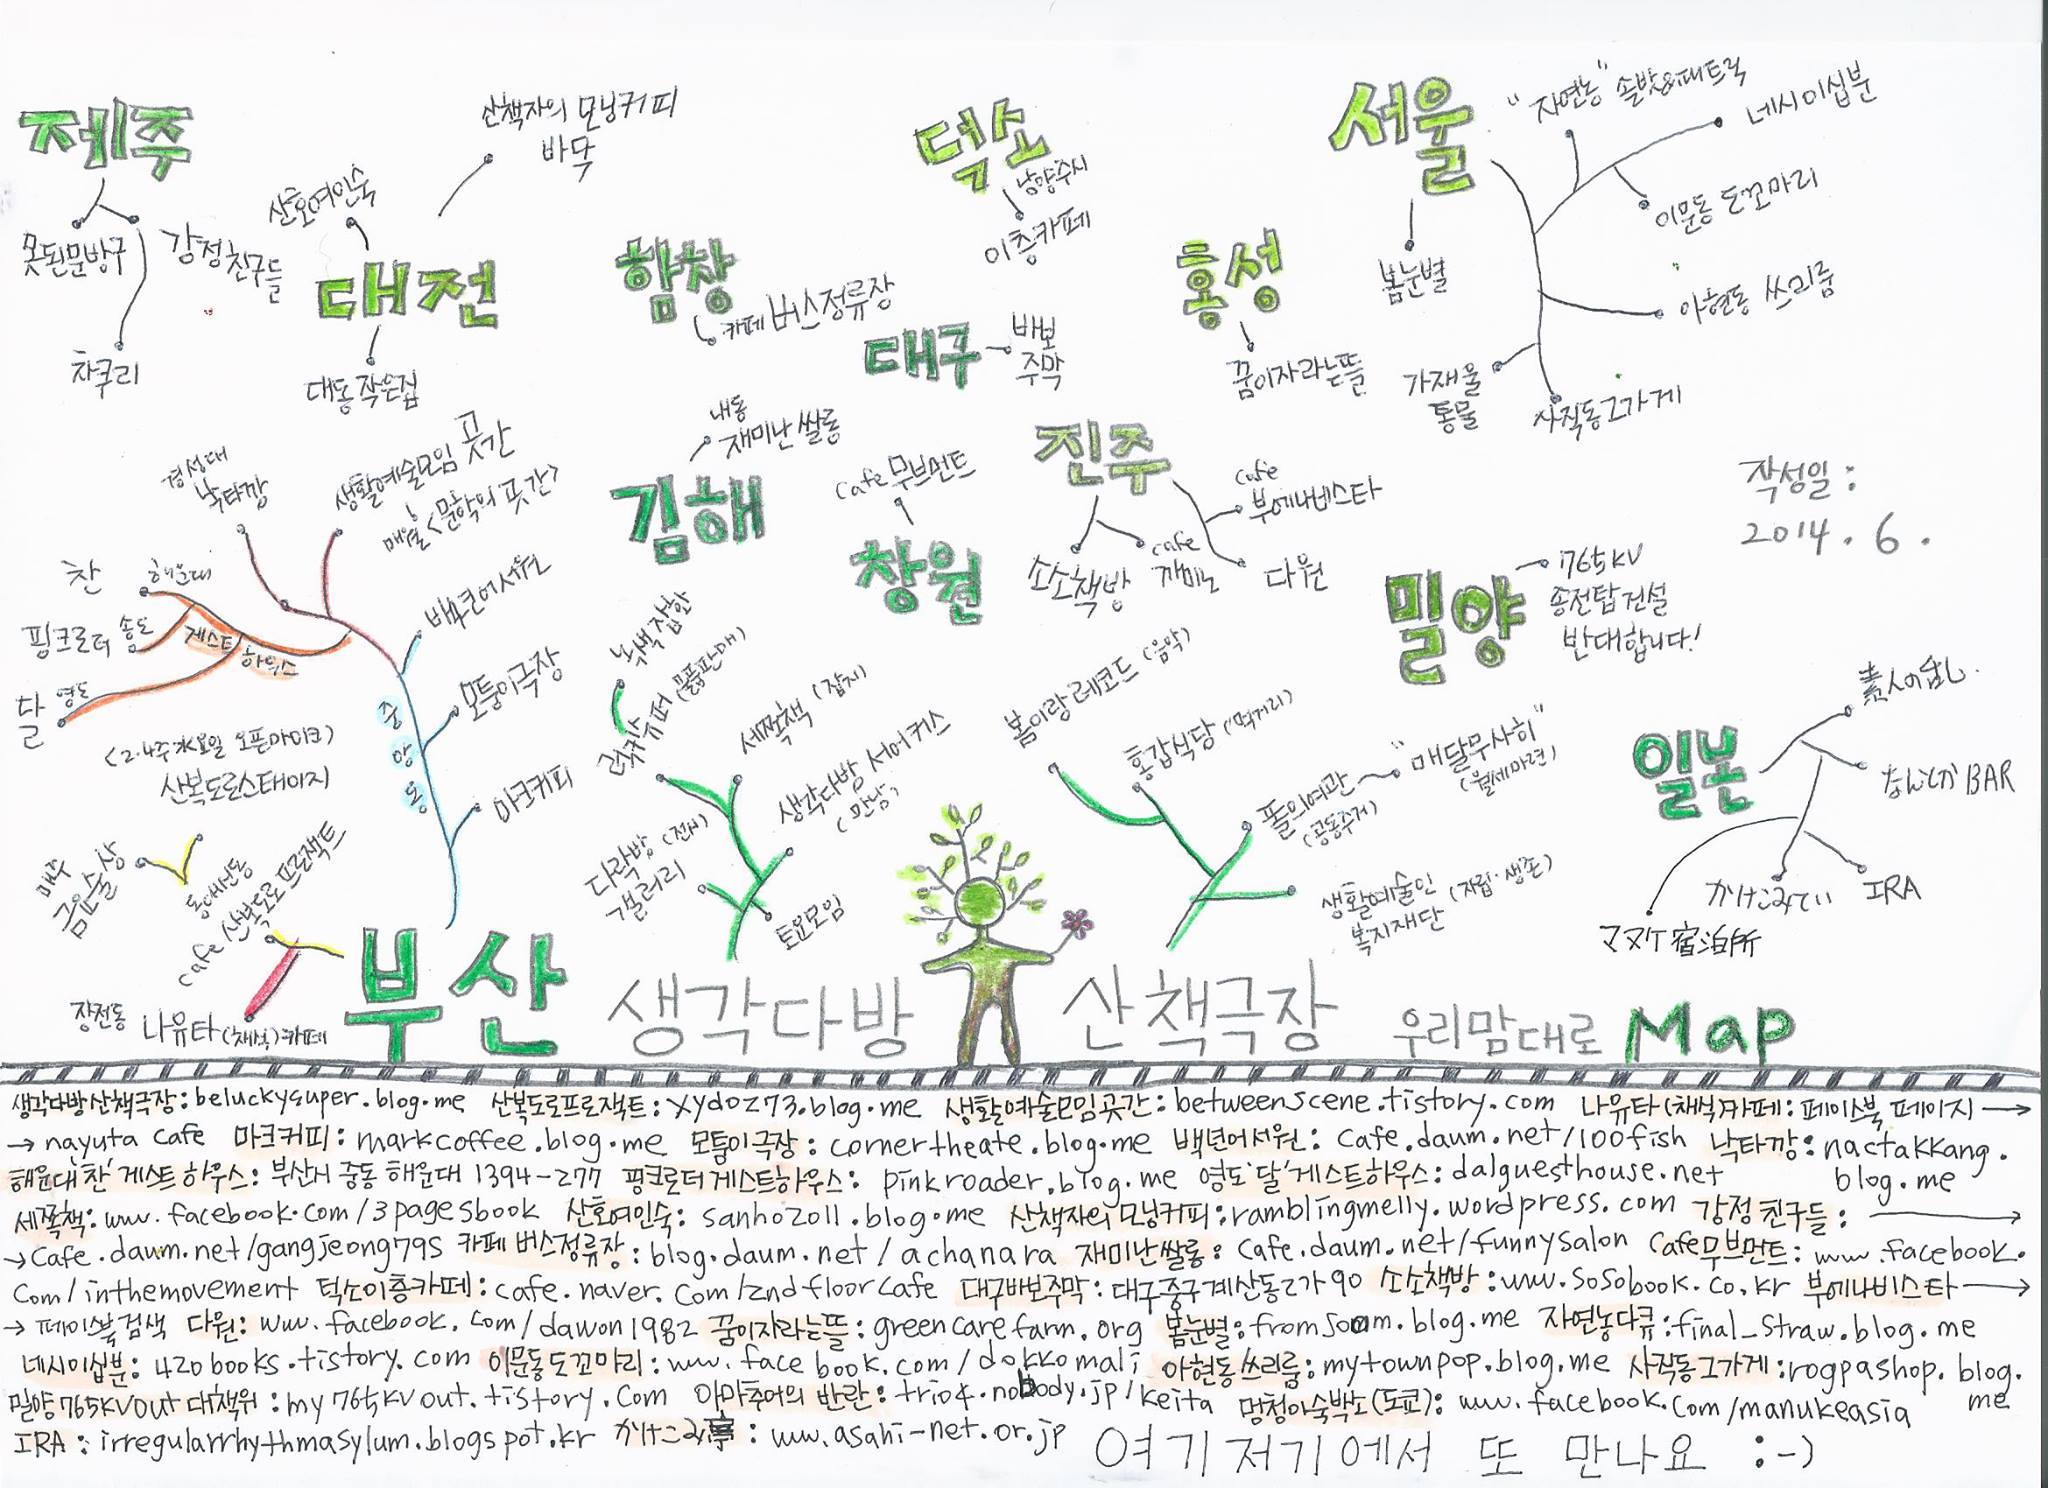 제주
못된문방구
강정친구들
차쿠리
산책자의 모닝커피
바닥
산호여인숙
대전
대동작은집
덕소
남양주시
이층카페
함창
카페 버스정류장
대구
바보
주막
홍성
꿈이자라는뜰
서울
봄눈별
"자연농" 솔밧&패트릭
네시이십분
이문동 도꼬마리
아현동 쓰리룸
가재울
통물
사직동그가게
내동
재미난쌀롱
김해
cafe 무브먼트
창원
진주
소소책방
cafe
까미노
cafe
부에나비스타
다원
밀양
765kV
송전탑건설
반대합니다!
작성일 :
2014. 6.
일본
素人の乱.
なんとかBAR
かけこみてい
IRA
マヌケ宿泊所
경성대
낙타깡
생활예술모임 곳간
매월<문학의 곳간>
찬
해운대
핑크로더
송도
게스트
하우스
달
영도
백년어서원
모퉁이극장
마크커피
중
앙
동
(2·4주 水요일 오픈마이크)
산복도로스테이지
매주
금요술상
동대신동
cafe/산복도로프로젝트
장전동
나유타(채식)카페
부산
녹색잡화
럭키슈퍼 (물품판매)
세쪽책 (잡지)
생각다방 서어커스
(만남)
다락방 (전시)
갤러리
토요모임
봄이랑레코드 (음악)
홍갑식당 (먹거리)
폴의여관
(공동주거)
"매달무사히"
(월세마련)
생활예술인
복지재단 (자립·생존)
생각다방 산책극장 우리맘대로 Map
생각다방산책극장:beluckysuper.blog.me 산복도로프로젝트:xydoz73.blog.me 생활예술모임곳간:betweenscene.tistory.com 나유타(채식)카페:페이스북 페이지→
→nayuta cafe 마크커피:markcoffee.blog.me 모퉁이극장:cornertheate.blog.me 백년어서원:cafe.daum.net/100fish 낙타깡:nactakkang.
blog.me
해운대'찬'게스트하우스:부산시 중동 해운대 1394-277 핑크로더게스트하우스:pinkroader.blog.me 영도'달'게스트하우스:dalguesthouse.net
세쪽책:www.facebook.com/3pagesbook 산호여인숙:sanho2011.blog.me 산책자의모닝커피:ramblingmelly.wordpress.com 강정친구들:→
→cafe.daum.net/gangjeong795 카페 버스정류장:blog.daum.net/achanara 재미난쌀롱:cafe.daum.net/funnysalon cafe무브먼트:www.facebook.
com/inthemovement 덕소이층카페:cafe.naver.com/2ndfloorcafe 대구바보주막:대구중구계산동2가90 소소책방:www.sosobook.co.kr 부에나비스타→
→페이스북검색 다원:www.facebook.com/dawon1982 꿈이자라는뜰:greencarefarm.org 봄눈별:fromsoom.blog.me 자연농다큐:final_straw.blog.me
네시이십분:420books.tistory.com 이문동도꼬마리:www.facebook.com/dokkomali 아현동쓰리룸:mytownpop.blog.me 사직동그가게:rogpashop.blog.
me
밀양765kVout대책위:my765kvout.tistory.com 아마추어의 반란:trio4.nobody.jp/keita 멍청이숙박소(도쿄):www.facebook.com/manukeasia
IRA:irregularrhythmasylum.blogspot.kr かけこみ亭:www.asahi-net.or.jp 여기저기에서 또 만나요 :-)